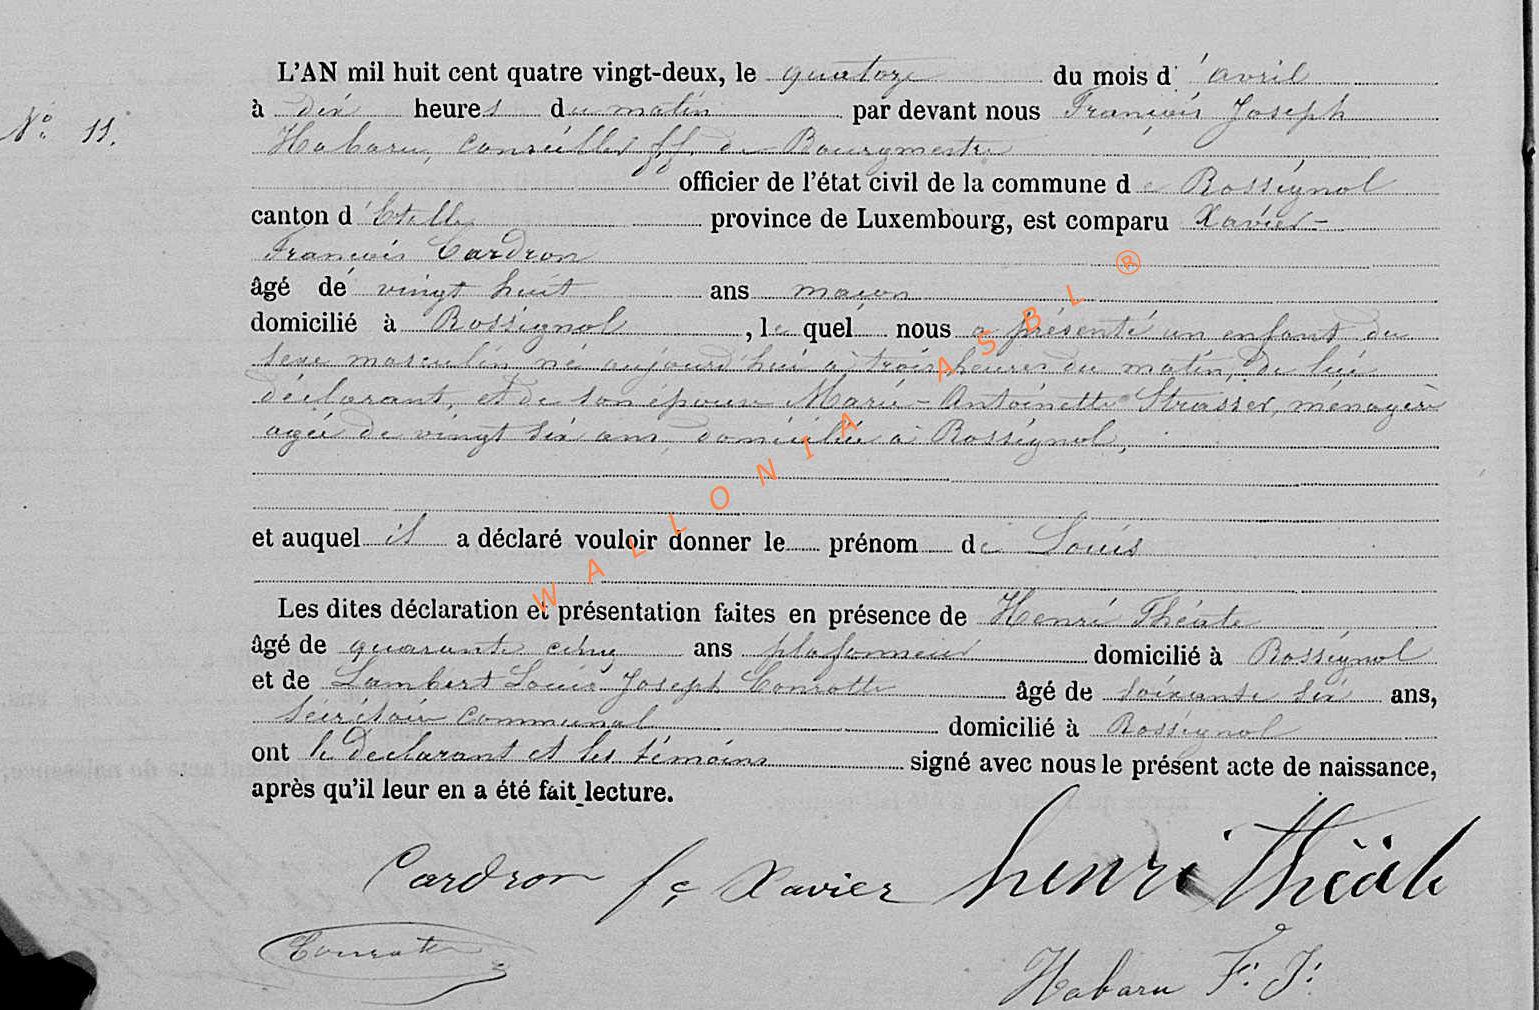 L'AN mil huit cent quatre vingt-deux, le quatorze du mois d'avril
N° 11.
à dix heures du matin par devant nous François Joseph
Habaru, Conseiller ff. de Bourgmestre
officier de l'état civil de la commune de Rossignol
canton d'Etalle province de Luxembourg, est comparu Xavier-
François Cardron
âgé de vingt huit ans maçon
domicilié à Rossignol, le quel nous a présenté un enfant du
sexe masculin, né aujourd'hui à trois heures du matin, de lui
déclarant, et de son épouse Marie-Antoinette Strasser, ménagère
agée de vingt six ans, domiciliée à Rossignol,
et auquel il a déclaré vouloir donner le prénom de Louis
Les dites déclaration et présentation faites en présence de Henri Théate
âgé de quarante cinq ans plafonneur domicilié à Rossignol
et de Lambert Louis Joseph Conrotte âgé de soixante six ans,
sécrétaire communal domicilié à Rossignol
ont le declarant et les témoins signé avec nous le présent acte de naissance,
après qu'il leur en a été fait lecture.
Cardron fc Xavier henri Théate
Conrotte
Habaru F. J.
WALLONIA ASBL ®